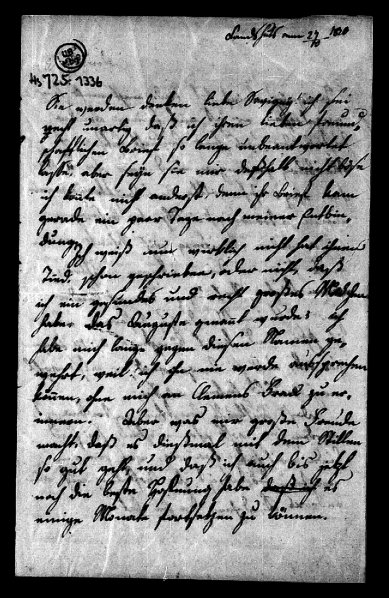 Landshut am 27/10
Hs 725 1336
Sie werden denken liebe Savigny ich sei
recht unartig daß ich ihren lieben freund-
schaftlichen Brief so lange unbeantwortet
ließe aber seyn sie mir deßhalb nicht böse
ich konte nicht anderst, denn ihr Brief kam
gerade ein paar Tage nach meiner Entbin-
dung. Ich weiß nun wirklich nicht hat ihnen
schon geschrieben, oder nicht, daß
ich ein gesundes und recht großes Mädchen
habe, das Auguste genant wurde; ich
habe mich lange gegen diesen Namen ge-
wehrt, weil ich ihn nie werde aussprechen
können, ohne mich an Clemens Frau zu er-
inneren. Aber was mir große Freude
macht, daß es dießmal mit dem Stillen
so gut geht, und daß ich auch bis jetzt
noch die beste Hoffnung habe es
einige Monate fortsetzen zu können.